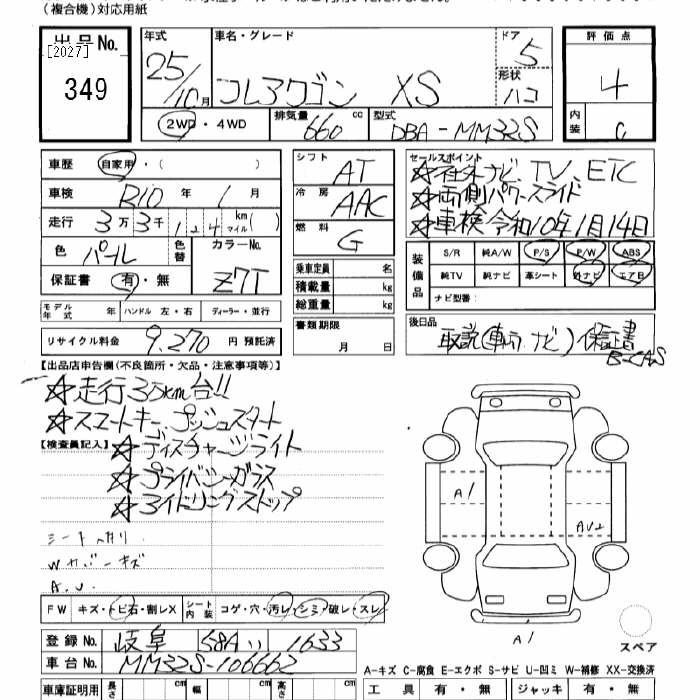 （複合機）対応用紙
出品No.
[2027]
349
年式
25/10月
車名・グレード
フレアワゴン XS
ドア
5
形状
ハコ
評価点
4
内装
C
2WD・4WD
排気量
660 cc
型式
DBA-MM32S
車歴
自家用・( )
車検
R10 年 1 月
走行
3万3千1 2 4 km マイル( )
色
パール
色替
カラーNo.
Z7T
保証書
有・無
モデル年式 年
ハンドル 左・右
ディーラー・並行
リサイクル料金
9,270 円 預託済
シフト
AT
冷房
AAC
燃料
G
乗車定員 名
積載量 kg
総重量 kg
書類期限
月 日
セールスポイント
☆社外ナビ、TV、ETC
☆両側パワースライド
☆車検令和10年1月14日
装備品
S/R 純A/W P/S P/W ABS
純TV 純ナビ 革シート 外ナビ エアB
ナビ型番：
後日品
取説(車両、ナビ)保証書
B-CAS
【出品店申告欄(不良箇所・欠品・注意事項等)】
☆走行3万km台!!
☆スマートキー プッシュスタート
【検査員記入】
☆ディスチャージライト
☆プライバシーガラス
☆アイドリングストップ
シート
Wカバーキズ
A.U.
A1
AU2
A1
スペア
FW
キズ・トビ石・割レX
シート内装
コゲ・穴・汚レ・シミ・破レ・スレ
登録No.
岐阜 58A い 1633
車台No.
MM32S-106662
A-キズ C-腐食 E-エクボ S-サビ U-凹ミ W-補修 XX-交換済
車庫証明用
長さ cm 幅 cm 高さ cm
工具 有・無
ジャッキ 有・無